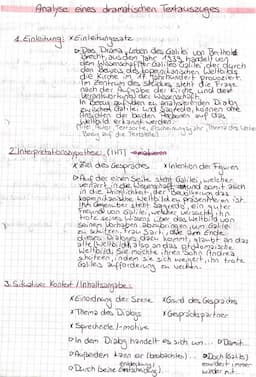 Analyse eines dramatischen Textauszuges
1. Einleitung: x Einleitungssatz
Das Drama „Leben des Galilei" von Bertholt
Brecht, aus dem Jahr 1939, handelt von
dem Wissenschaftler Galileo Galilei, der durch
den Beweis des kopernikanischen Weltbilds
die Kirche im 17. Jahrhundert provoziert.
Im Zentrum des Stückes steht die Frage
nach der Aufgabe der Kirche und der
Verantwortung der Wissenschaft.
In Bezug auf den zu analysierenden Dialog
zwischen Galilei und Sagredo, können die
Ansichten der beiden Personen auf das
Weltbild erkannt werden.
(Titel, Autor, Textsorte, Erscheinungsjahr, Thema des Werkes
Bezug auf die Textstelle)
2. Interpretationshypothese: (IHT)
x Ziel des Gespräches x Intention der Figuren
Auf der einen Seite steht Galilei, welcher
vertraut in die Wissenschaft und somit auch
in die Möglichkeit, der Bevölkerung das
kopernikanische Weltbild zu präsentieren ist.
Ihm gegenüber steht Sagredo, ein guter
Freund von Galilei, welcher versucht, ihn
trotz seines Wissens über das Weltbild von
seinem Vorhaben abzubringen, um Galilei
zu schützen. Frau Sarti, die am Ende
dieses Dialogs dazu kommt, glaubt an das
alte Weltbild, also an das ptolemäische
Weltbild. Sie möchte ihren Sohn Andrea
schützen, indem sie sich weigert, ihn trotz
Galileis Aufforderung zu wecken.
3. Situativer Kontext / Inhaltsangabe:
x Einordnung der Szene x Grund des Gesprächs
x Thema des Dialogs x Gesprächspartner
x Sprechziele/-motive
In dem Dialog handelt es sich um... Damit...
Außerdem kann er (beobachtet)... Doch (Galilei)
entdeckungen erwidert immer
Durch (seine wieder mit